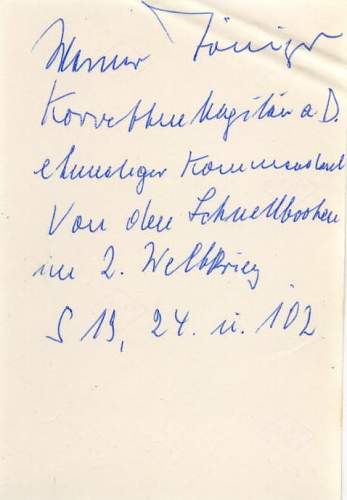 Werner Töniges
Korvettenkapitän a.D.
ehemaliger Kommandant
Von den Schnellbooten
im 2. Weltkrieg
S 19, 24. u. 102